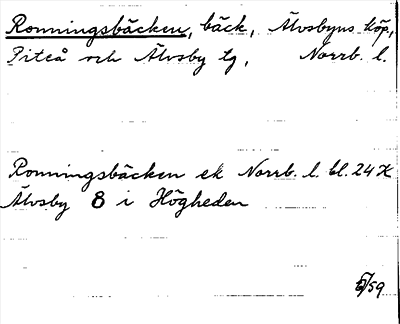 Ronningsbäcken, bäck, Älvsbyns köp,
Piteå och Älvsby tg, Norrb. l.
Ronningsbäcken ek Norrb. l. bl. 24 K
Älvsby 8 i Högheden
/59